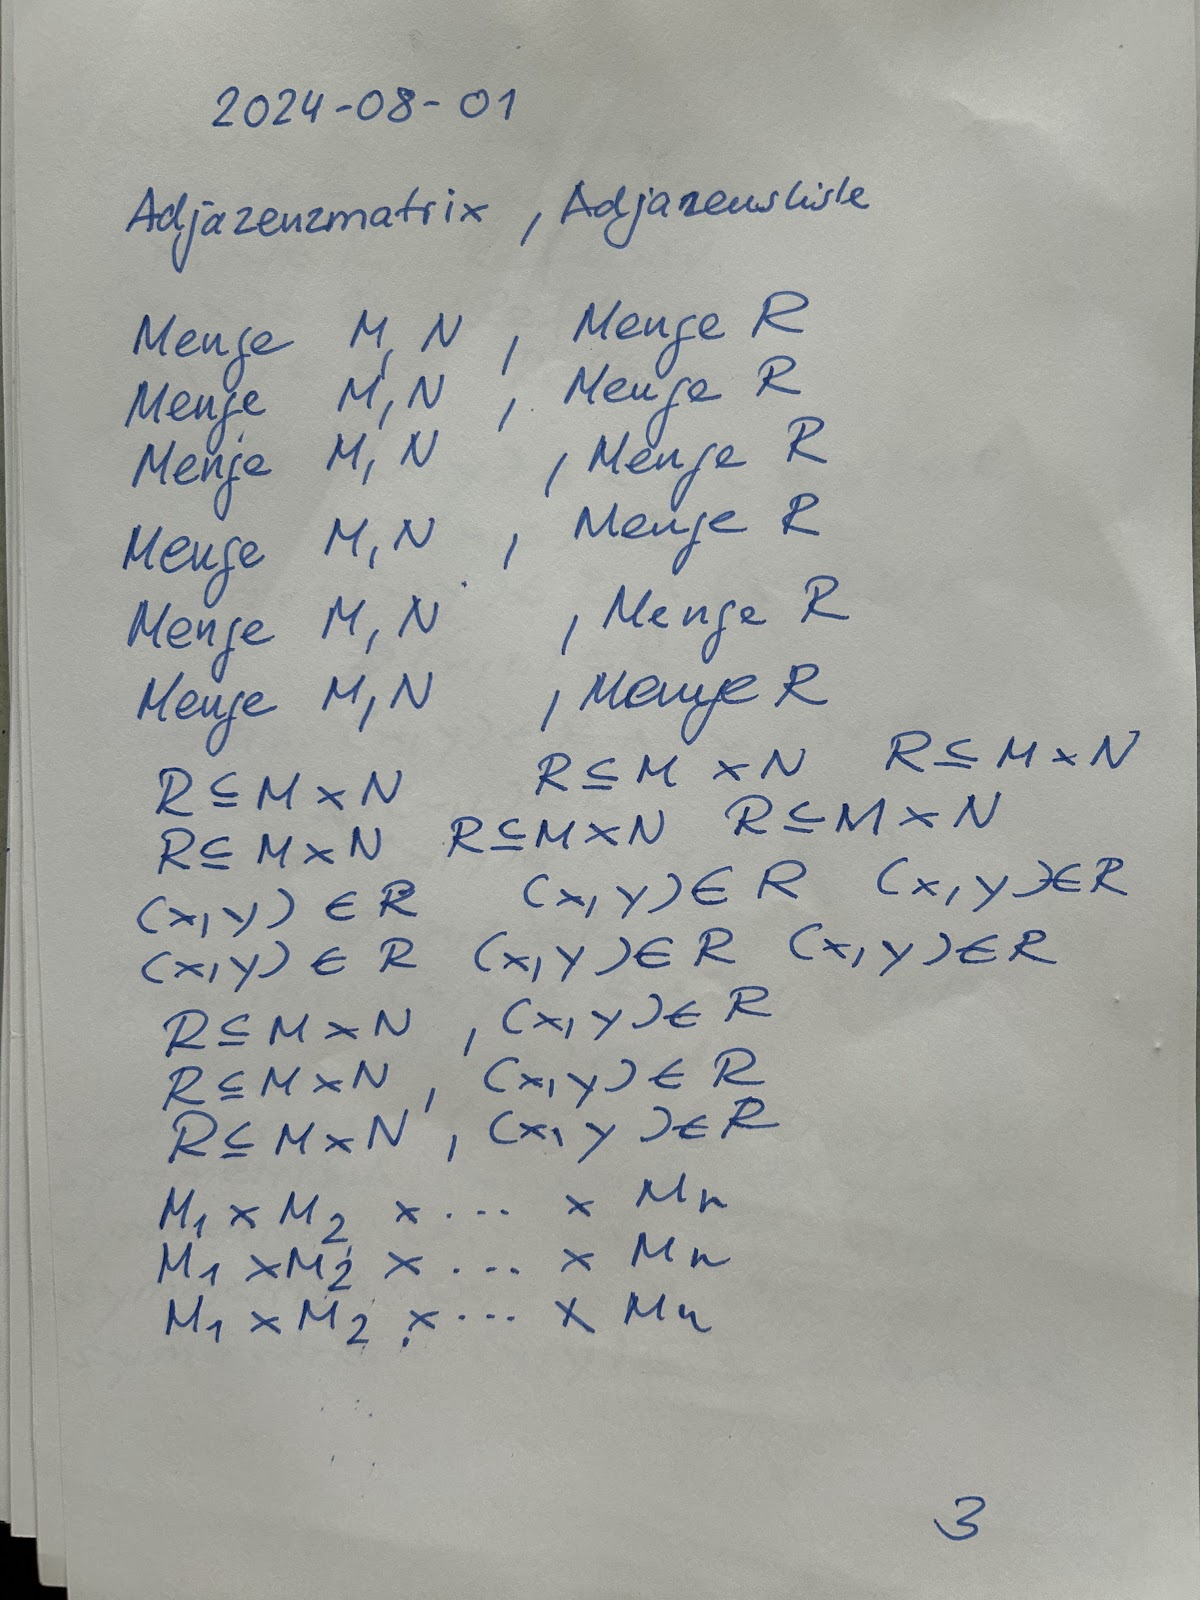 2024-08-01
Adjazenzmatrix, Adjazensliste
Menge M, N, Menge R
Menge M, N, Menge R
Menge M, N, Menge R
Menge M, N, Menge R
Menge M, N, Menge R
Menge M, N, Menge R
R ⊆ M × N R ⊆ M × N R ⊆ M × N
R ⊆ M × N R ⊆ M × N R ⊆ M × N
(x, y) ∈ R (x, y) ∈ R (x, y) ∈ R
(x, y) ∈ R (x, y) ∈ R (x, y) ∈ R
R ⊆ M × N, (x, y) ∈ R
R ⊆ M × N, (x, y) ∈ R
R ⊆ M × N, (x, y) ∈ R
M₁ × M₂ × ... × Mₙ
M₁ × M₂ × ... × Mₙ
M₁ × M₂ × ... × Mₙ
3